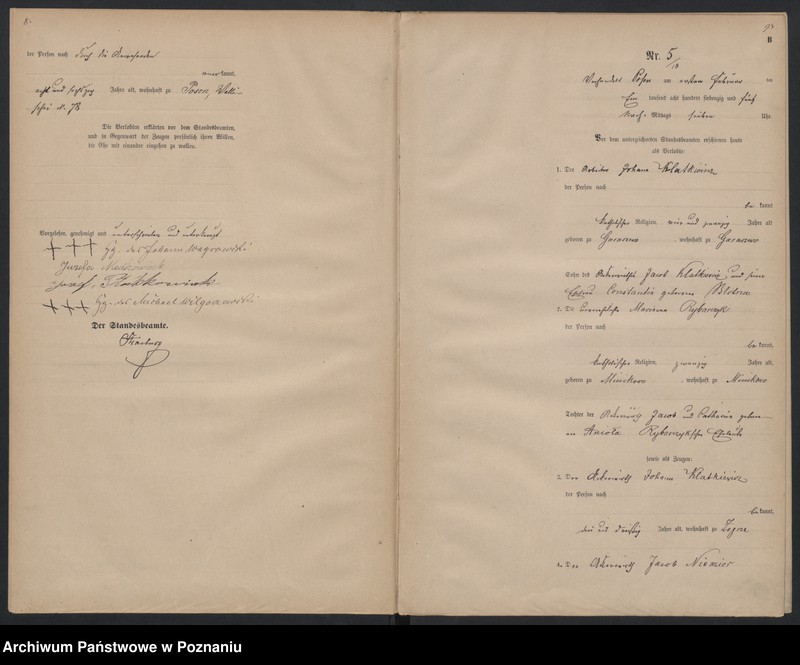 8.
der Person nach durch die Anwesenden
anerkannt,
acht und sechszig Jahre alt, wohnhaft zu Posen, Walli-
schei N. 78
Die Verlobten erklärten vor dem Standesbeamten,
und in Gegenwart der Zeugen persönlich ihren Willen,
die Ehe mit einander eingehen zu wollen.
Vorgelesen, genehmigt und unterschrieben und unterkreuzt
+ + + Hz. des Johann Wagrowski
Józefa
+ + + Hz. des Michael
Der Standesbeamte.
B
Nr. 5
Verhandelt Posen am ersten Februar
Ein tausend acht hundert siebenzig und fünf
Nach Mittags sieben Uhr.
Vor dem unterzeichneten Standesbeamten erschienen heute
als Verlobte:
1. Der Arbeiter Johann Klatkiewicz
der Person nach
bekannt
katholischer Religion, vier und zwanzig Jahre alt
geboren zu , wohnhaft zu
Sohn des Jacob Klatkiewicz und seiner
Ehefrau Constantia geborene
2. Die Marianna Rybarczyk
der Person nach
bekannt,
katholischer Religion, zwanzig Jahre alt,
geboren zu Minikowo , wohnhaft zu Minikowo
Tochter der Jacob und Catharina gebor-
Rybarczykschen Eheleute
sowie als Zeugen:
Der Johann Klatkiewicz
der Person nach
bekannt,
drei und dreißig Jahre alt, wohnhaft zu Zegrze
4. Der Jacob Niemier
Archiwum Państwowe w Poznaniu